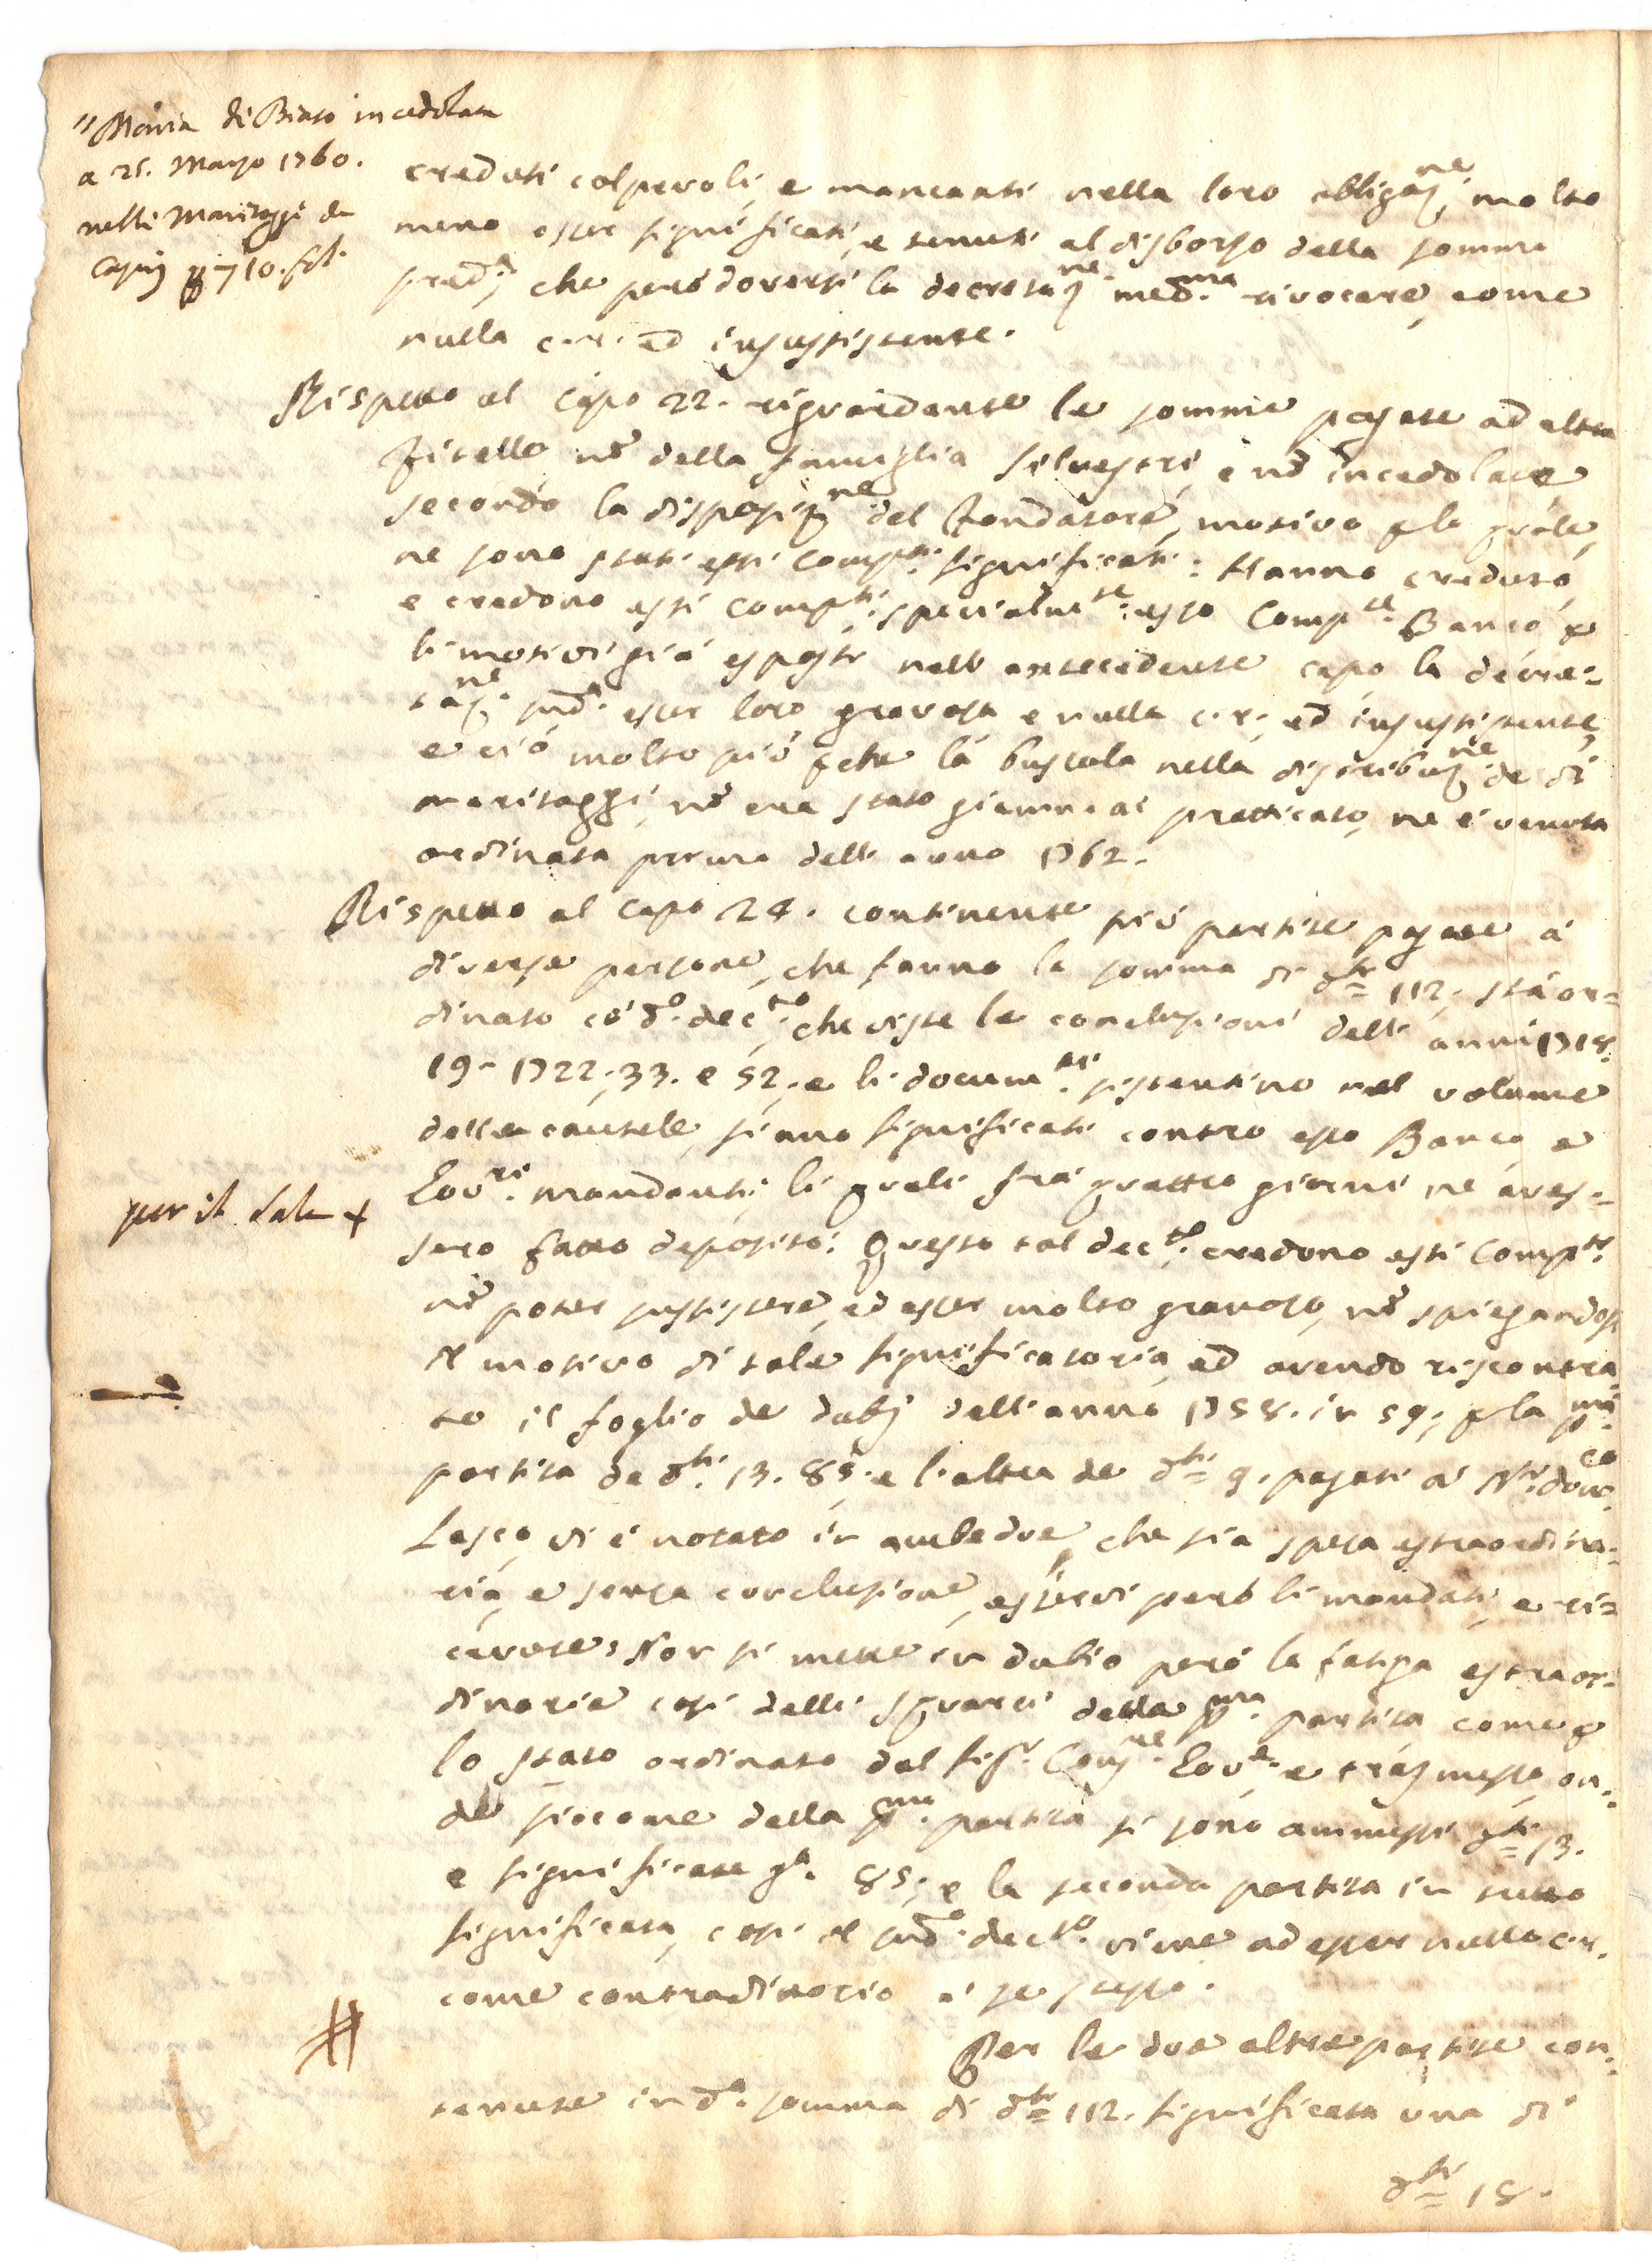 "Maria di Biaso incedolata
a 25. Marzo 1760.
nelli Maritaggi de
Capiq 710. fol.
creduti colpevoli, e mancanti nella loro obligaz.ne, molto
meno esser significati, e tenuti al disborso della somma
pred.a, che però doversi la decretaz.ne med.ma rivocare, come
nulla c. r. ed insussistente.
Rispetto al capo 22. riguardante le somme pagate ad altra
Zitella nõ della famiglia Silvestri, e nõ incedolate
secondo la disposiz.ne del Fondatore, motivo p la quale
ne sono stati essi Comp.ti significati: Hanno creduto,
e credono essi Comp.ti, specialm.te esso Comp.te Banco p
li motivi già esposti nell'antecedente capo, la decre=
taz.ne sud.a esser loro gravosa e nulla c. r., ed insussistente,
e ciò molto più pche la bussola nella distribuz.ne de di
maritaggi, nõ era stato giammai pratticato, ne è venuta
ordinata prima dell'anno 1762.
Rispetto al Capo 24. continente più partite pagate a
diverse persone, che fanno la somma di d.ti 112, sta or=
dinato cõ d.o dec.to, che viste le conclusioni dell'anni 1718.
19. 1722, 33. e 52, e li docum.ti sistentino nel volume
delle cautele, siano significati contro esso Banco, e
Gov.ri mandanti, li quali frà quattro giorni ne aves=
per il Sale +
sero fatto deposito: Questo tal dec.to credono essi Comp.ti
nõ poter sussistere, ed esser molto gravoso, nõ spiegandosi
il motivo di tale significatoria, ed avendo riscontra=
to il foglio de dubj dell'anno 1758. in 59, p la p.ma
partita de d.ti 13. 85, e l'altra de d.ti 9. pagati a N.r Dom.co
Lasco, vi è notato in ambedue, che sia spesa estraordina=
ria, e senza conclusione, esservi però li mandati, e ri=
cevute. Non si mette in dubio però la fatiga estraor=
dinaria così delli squarci della p.ma partita come p
lo stato ordinato dal Sig.r Cons.re Gov.re, e trasmesso, on=
de siccome della p.ma partita si sono ammessi d.ti 13.
e significate g.a 85, e la seconda partita in tutto
significata, così il sud.o dec.to viene ad esser nullo c. r.
come contradittorio a se stesso.
#
Per le due altre partite con=
tenute in d.a somma di d.ti 112. significata una di
d.ti 18.